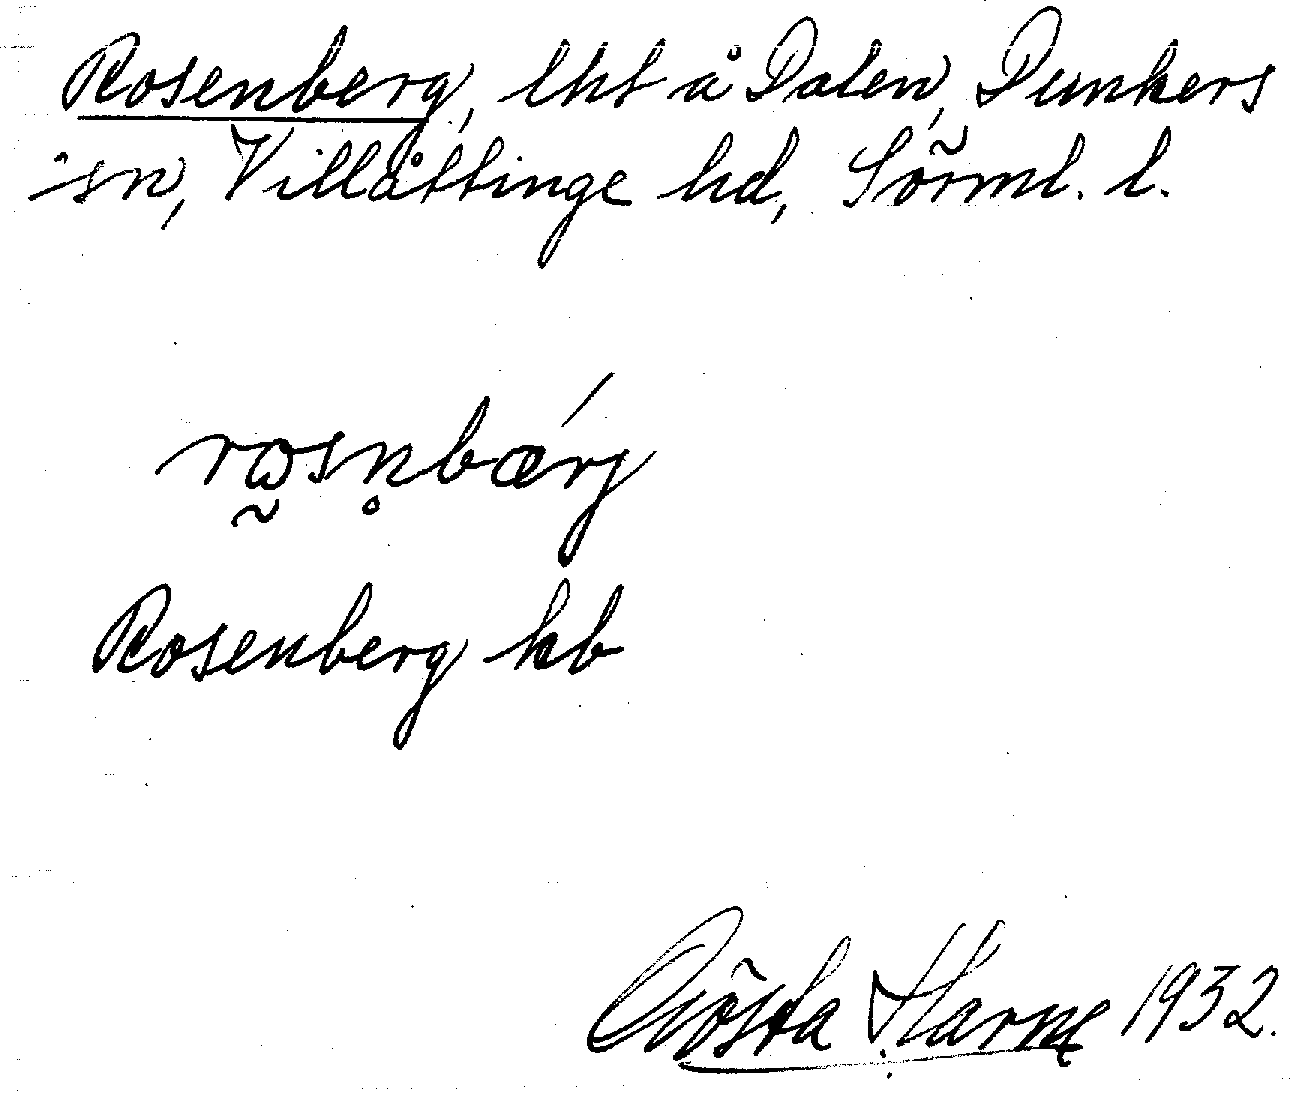 Rosenberg, lht å Dalen, Dunkers
sn, Villåttinge hd, Sörml. l.
Rosenberg kb
Gösta 1932.